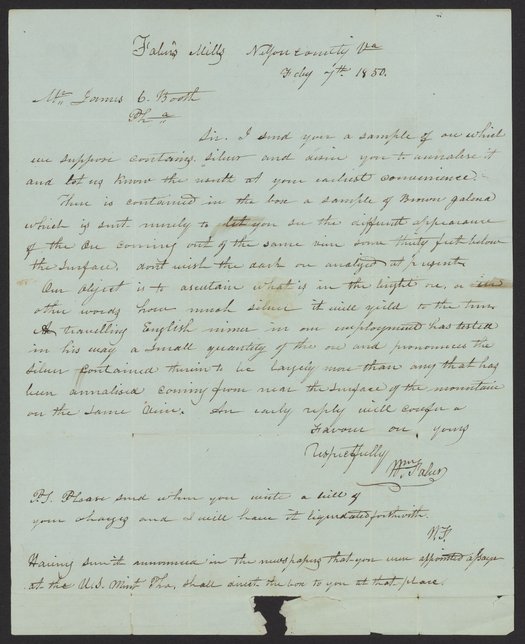 Faber's Mills Nelson County Va
Feby 7th 1850.
Mr James C. Booth
Phila
Sir. I send you a sample of ore which
we suppose contains silver and desire you to annalise it
and let us know the result at your earliest convenience.
There is contained in the box a sample of Brown galena
which is sent merely to let you see the different appearance
of the Ore coming out of the same vein some thirty feet below
the surface. dont wish the dark ore analyzed at present
Our Object is to ascertain what is in the bright ore, or in
other words how much silver it will yield to the tun.
A travelling English miner in our employment has tested
in his way a small quantity of the ore and pronounces the
silver contained therein to be largely more than any that has
been annalised coming from near the surface of the mountain
on the same Vein. An early reply will confer a
favour on yours
respectfully
Wm Faber
P.S. Please send when you write a bill of
your charges and I will have it liquidated forthwith.
W.F.
Having seen it announced in the newspapers that you were appointed assayer
at the U.S. Mint Pha, shall direct the box to you at that place.